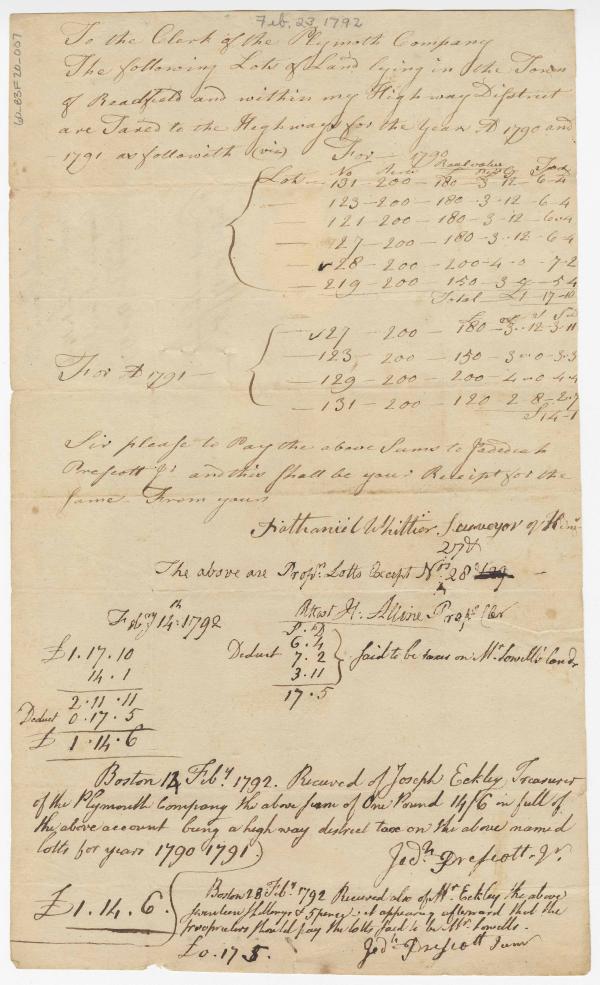 Feb. 23, 1792
To the Clerk of the Plymoth Company
The following Lots of Land lying in the Town
of Readfield and within my Highway District
are Taxed to the Highways for the Years AD 1790 and
1791 as followeth (viz) For 1790
No Real value Tax
Lot 131 - 200 - 180 - 3 - 12 - 6 - 4
123 - 200 - 180 - 3 - 12 - 6 - 4
121 - 200 - 180 - 3 - 12 6 - 4
127 - 200 - 180 - 3 - 12 - 6 - 4
28 - 200 - 200 - 4 - 0 - 7 - 2
219 - 200 - 150 - 3 - 0 - 5 4
Total £1 - 17 - 10
27 - 200 - 180 - 3 - 12 - 3 - 11
123 - 200 - 150 - 3 - 0 - 3 - 3
For AD 1791
129 - 200 - 200 - 4 - 0 4 - 4
131 - 200 - 120 2 8 - 2 - 7
14 - 1
Sir please to Pay the above Sums to Jedediah
Prescott Jr and this Shall be your Receipt for the
same From yours
Nathaniel Whittier Surveyor of
27&
The above are Propr. Lotts Except No. 28
Attest H: Alline Prop. Cler
Feby 14th 1792
£1. 17. 10
14. 1
2. 11. 11
Deduct 0. 17. 5
£ 1. 14. 6
S. D
6. 4
Deduct 7. 2 Said to be taxes on Mr. Lowell's Land
3. 11
17. 5
Boston 14 Feby. 1792. Received of Joseph Eckley Treasurer
of the Plymouth Company the above sum of One Pound 14/6 in full of
the above account being a high way district tax on the above named
lotts for years 1790 1791.
Jedh Prescott Jr.
£ 1. 14. 6.
Boston 28 Feby. 1792 Received also of Mr. Eckley the above
seventeen Shillings & 5 pence it appearing afterward that the
proprietors should pay the lotts said to be Mr. Lowells.
£0. 17 5. Jedh Prescott Junr
60-83F20-007